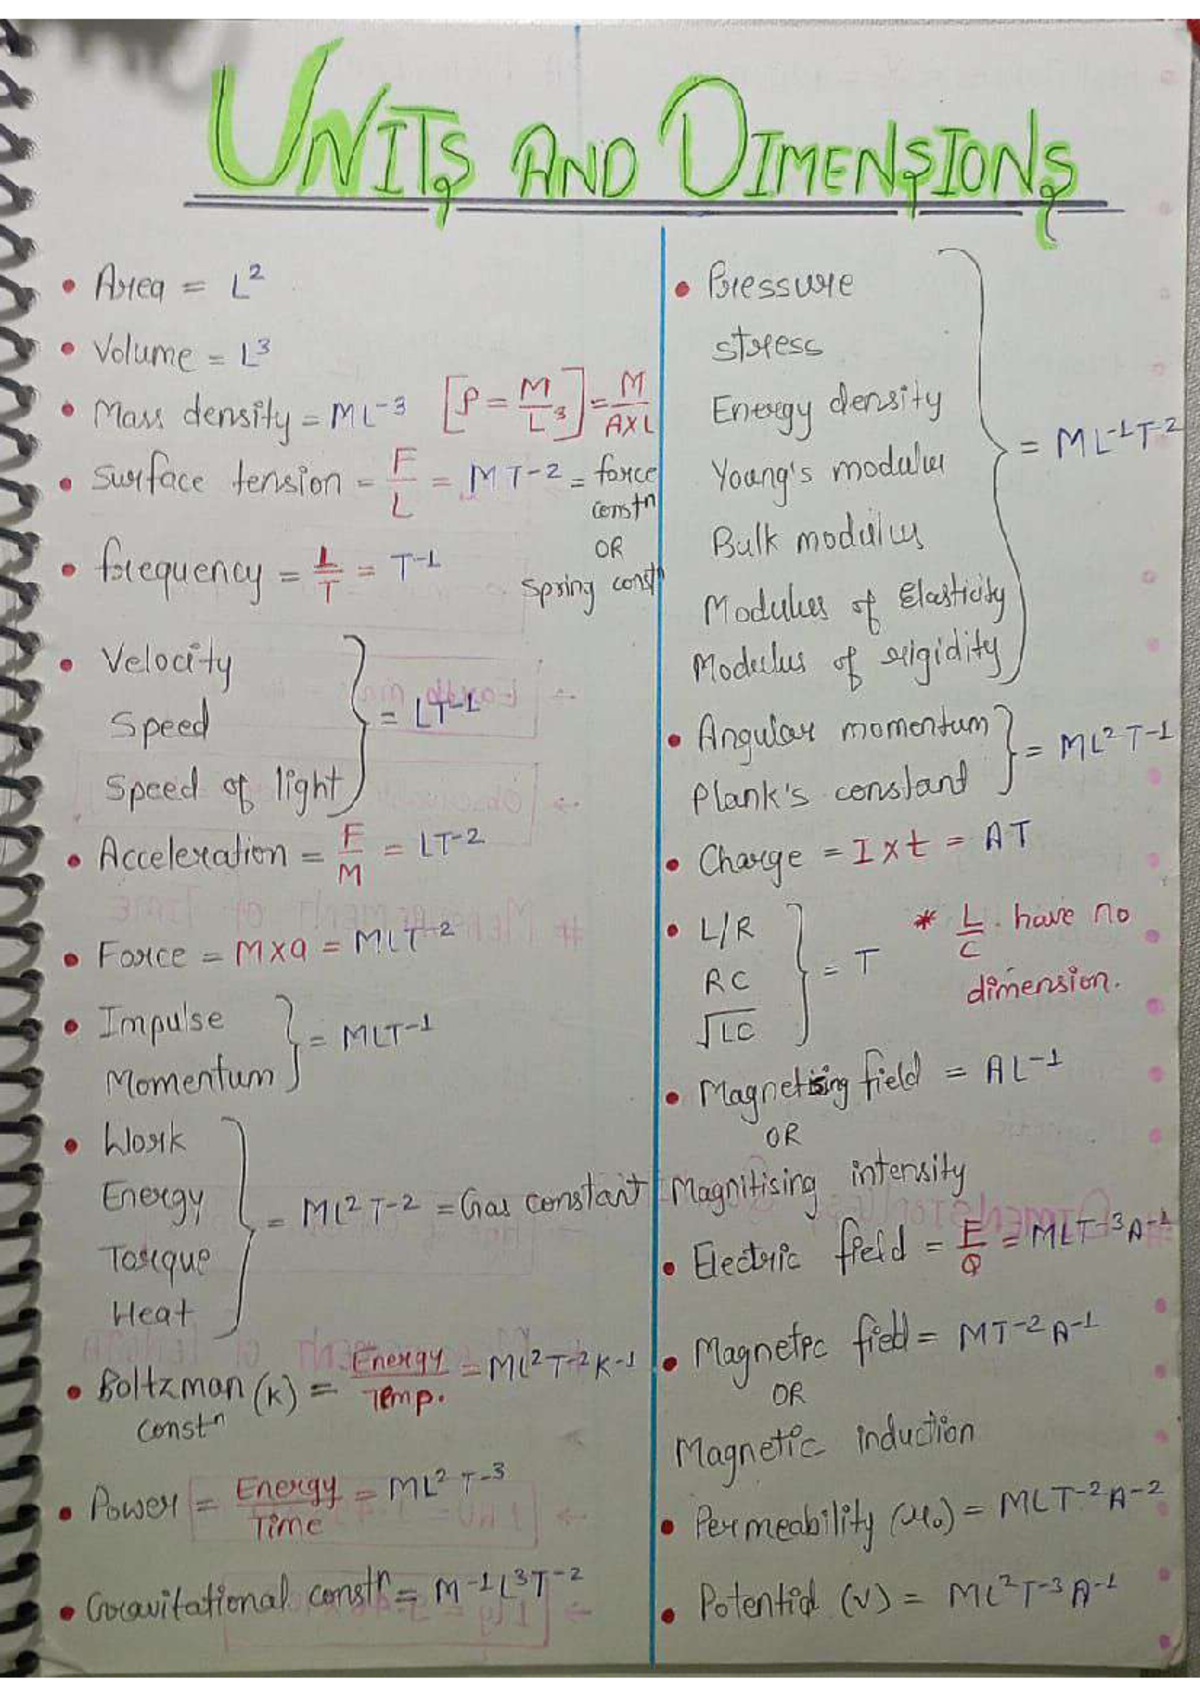 UNITS AND DIMENSIONS
• Area = L²
• Volume = L³
• Mass density = ML⁻³ [ρ = M/L³] = M/A×L
• Surface tension = F/L = MT⁻² = force constⁿ OR Spring constⁿ
• frequency = 1/T = T⁻¹
• Velocity
Speed
Speed of light } = LT⁻¹
• Acceleration = F/M = LT⁻²
• Force = M×a = MLT⁻²
• Impulse
Momentum } = MLT⁻¹
• Work
Energy
Torque
Heat } = ML²T⁻² = Gas constant
• Boltzman (K) constⁿ = Energy/Temp. = ML²T⁻²K⁻¹
• Power = Energy/Time = ML²T⁻³
• Gravitational constⁿ = M⁻¹L³T⁻²
• Pressure
stress
Energy density
Young's modulus
Bulk modulus
Modulus of Elasticity
Modulus of rigidity } = ML⁻¹T⁻²
• Angular momentum
Plank's constant } = ML²T⁻¹
• Charge = I×t = AT
• L/R
RC
√LC } = T
* L/C have no
dimension.
• Magnetising field = AL⁻¹
OR
Magnitising intensity
• Electric field = F/Q = MLT⁻³A⁻¹
• Magnetic field = MT⁻²A⁻¹
OR
Magnetic induction
• Permeability (μ₀) = MLT⁻²A⁻²
• Potential (V) = ML²T⁻³A⁻¹